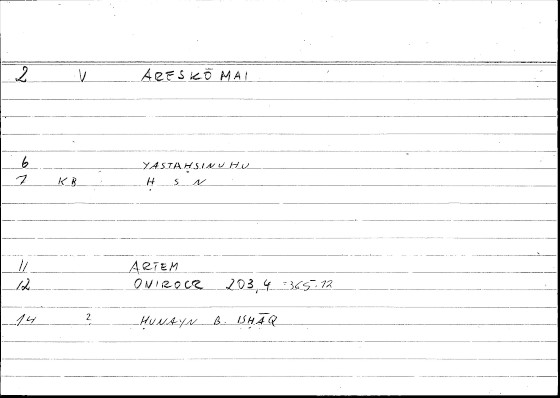 2 V ARESKŌ MAI
6 YASTAḤSINUHU
7 KB Ḥ S N
11 ARTEM
12 ONIROCR 203,4 =365.12
14 ? ḤUNAYN B. ISḤĀQ